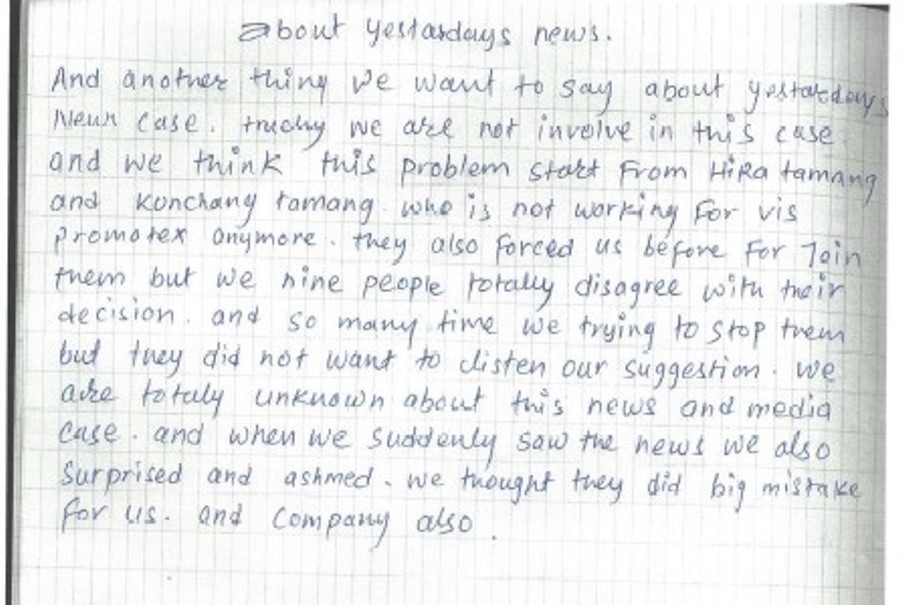 about yestardays news.
And another thing we want to say about yestardays
News case. truely we are not involve in this case.
and we think this problem start from Hira tamang
and Konchang tamang. who is not working for vis
promotex anymore. they also forced us before for Join
them but we nine people totally disagree with their
decision. and so many time we trying to stop them
but they did not want to listen our suggestion. we
are totaly unknown about this news and media
case. and when we suddenly saw the news we also
Surprised and ashmed. we thought they did big mistake
for us. and company also.